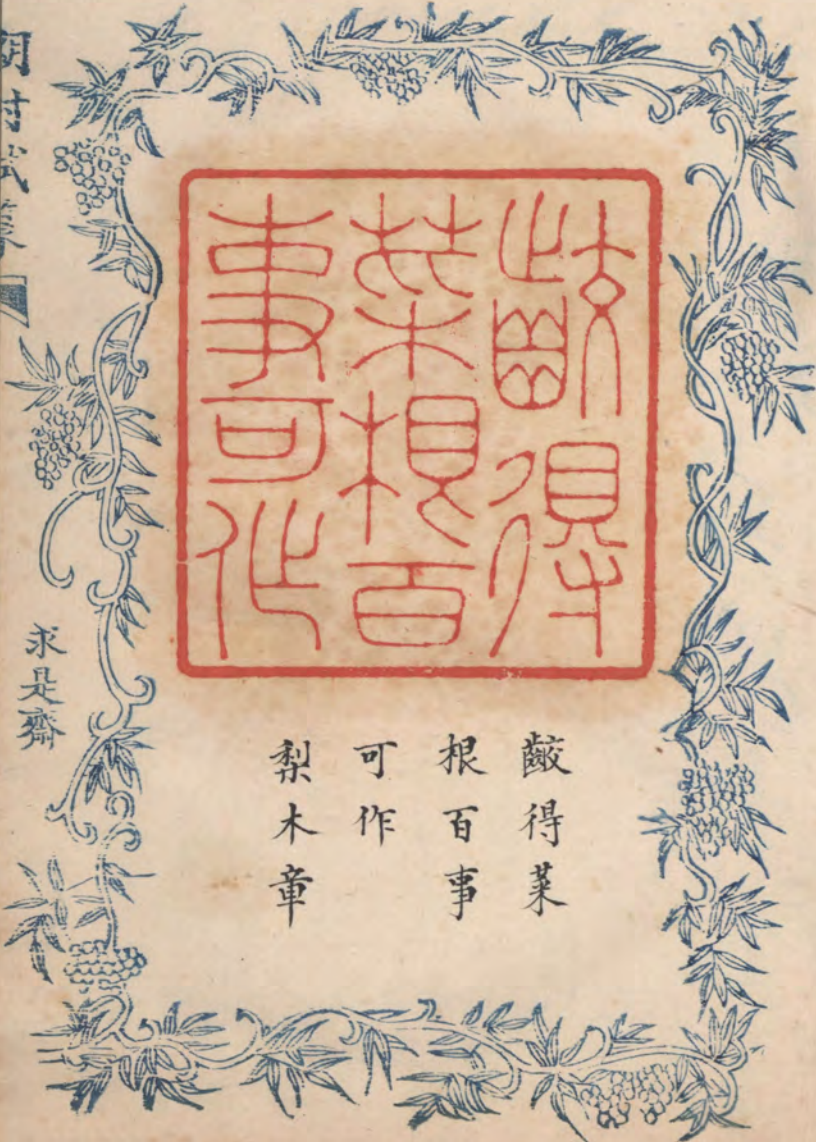 齩得
菜根百
事可作
齩得菜
根百事
可作
梨木章
求是齋